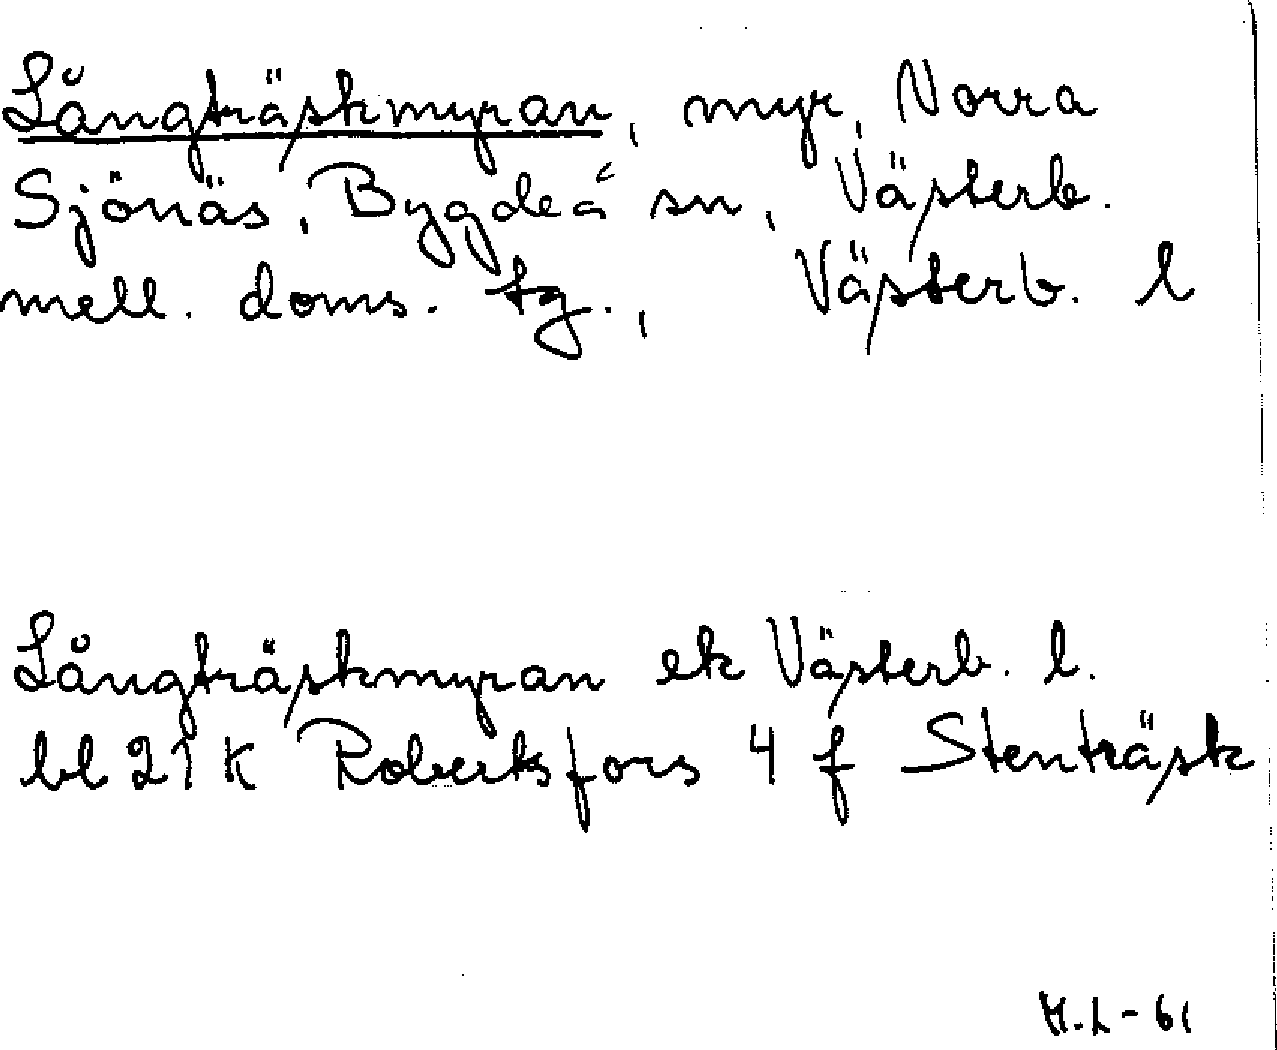 Långträskmyran, myr, Norra
Sjönäs, Bygdeå sn, Västerb.
mell. doms. tg., Västerb. l
Långträskmyran ek Västerb. l.
bl 21 K Robertsfors 4 f Stenträsk
H.L-61